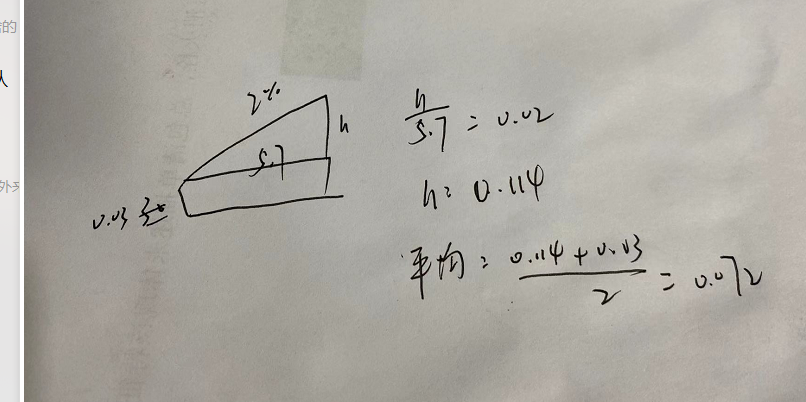 的
人
外来
2%
h
5.7
0.03
h/5.7 = 0.02
h = 0.114
平均 = (0.114 + 0.03)/2 = 0.072